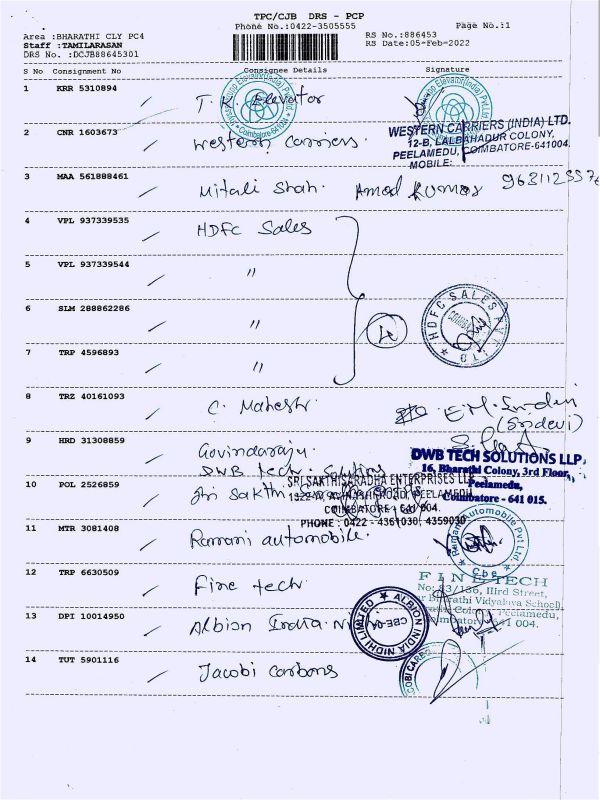 TPC/CJB DRS - PCP
Phone No.:0422-3505555
Page No.:1
Area :BHARATHI CLY PC4
Staff :TAMILARASAN
DRS No. :DCJB88645301
RS No.:886453
RS Date:05-Feb-2022
S No Consignment No Consignee Details Signature
1 KRR 5310894 T. K Elevator
2 CNR 1603673 Western Carriers.
WESTERN CARRIERS (INDIA) LTD.
12-B, LALBAHADUR COLONY,
PEELAMEDU, COIMBATORE-641004.
MOBILE:
3 MAA 561888461 Mitali Shah. Amod Kumar
4 VPL 937339535 HDFC Sales
5 VPL 937339544 "
6 SLM 288862286 "
4
HDFC SALES PVT LTD
7 TRP 4596893 "
8 TRZ 40161093 C. Mahesh.
(Sridevi)
9 HRD 31308859 Govindaraju
DWB tech. Solutions
DWB TECH SOLUTIONS LLP
16, Bharathi Colony, 3rd Floor,
Peelamedu,
Coimbatore - 641 015.
10 POL 2526859 Sri Sakthi
SRI SAKTHISARADHA ENTERPRISES LLP
PEELAMEDU
COIMBATORE - 641 004.
PHONE : 0422 - 4361030, 4359030
11 MTR 3081408 Ramani automobile.
Ramani Automobile Pvt Ltd.
Cbe
12 TRP 6630509 Fine tech
FINE TECH
No: 83/136, IIIrd Street,
Bharathi Vidyalaya School)
Colony, Peelamedu,
Coimbatore - 641 004.
13 DPI 10014950 Albion India Ni
ALBION INDIA NIDHI LIMITED
14 TUT 5901116 Jacobi carbons